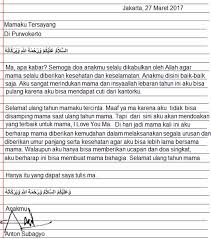 Jakarta, 27 Maret 2017
Mamaku Tersayang
Di Purwokerto
السَّلاَمُ عَلَيْكُمْ وَرَحْمَةُ اللهِ وَبَرَكَاتُهُ
Ma, apa kabar? Semoga doa anakmu selalu dikabulkan oleh Allah agar
mama selalu diberikan kesehatan dan keselamatan. Anakmu disini baik-baik
saja. Aku sangat merindukan mama dan insyaallah lebaran tahun ini aku akan
pulang karena aku bisa mendapat cuti dari kantorku.
Selamat ulang tahun mamaku tercinta. Maaf ya karena aku tidak bisa
disamping mama saat ulang tahun mama. Tapi dari sini aku akan mendoakan
yang terbaik untuk mama, I Love You Ma. Di hari jadi mama kali ini aku
berharap mama diberikan kemudahan dalam melaksanakan segala urusan dan
diberikan umur panjang serta kesehatan agar aku bisa lebih lama bersama
mama. Walaupun aku hanya bisa memberikan ucapan dan doa singkat,
aku berharap ini bisa membuat mama bahagia. Selamat ulang tahun mama
Hanya itu yang dapat saya tulis ma
وَعَلَيْكُمُ السَّلاَمُ وَرَحْمَةُ اللهِ وَبَرَكَاتُهُ
Anakmu
Anton Subagyo